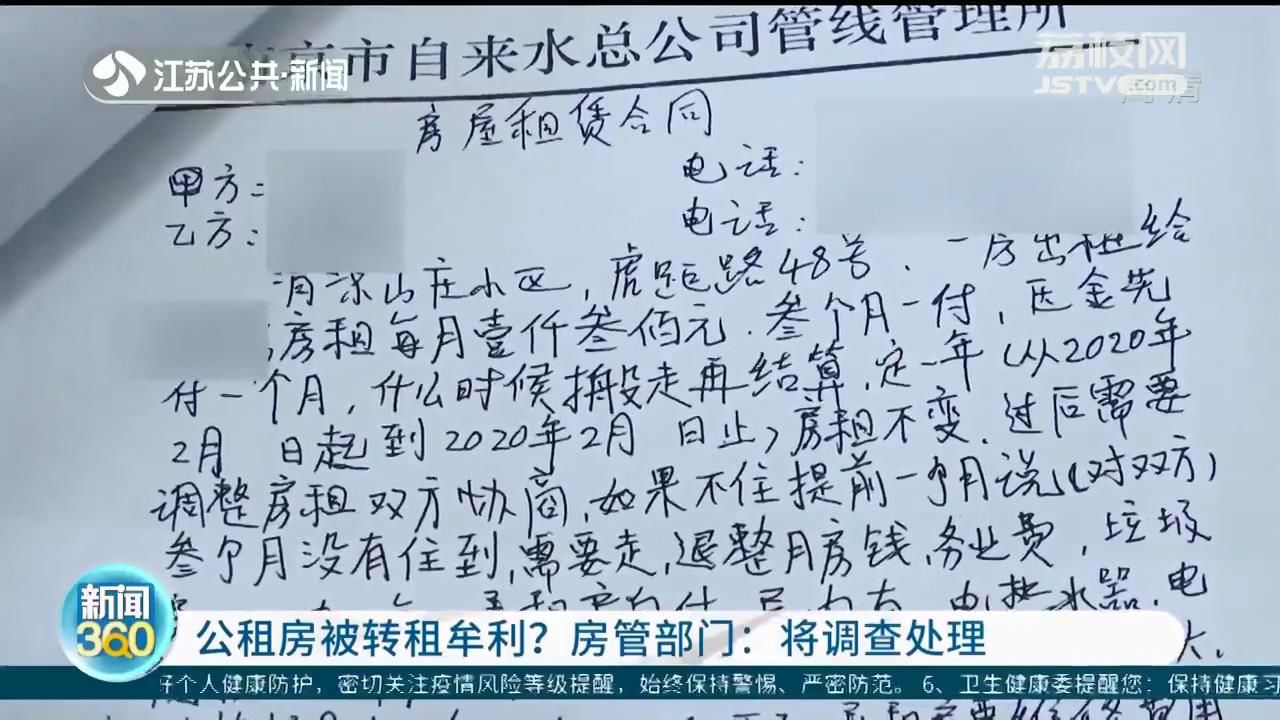 南京市自来水总公司管线管理所
江苏公共·新闻
荔枝网
JSTV.com
高清
房屋租赁合同
甲方:
电话:
乙方:
电话:
清凉山庄小区,虎距路48号. 一房出租给
房租每月壹仟叁佰元.叁个月一付,压金先
付一个月,什么时候搬走再结算,定一年(从2020年
2月 日起到2020年2月 日止)房租不变.过后需要
调整房租双方协商,如果不住提前一个月说(对双方)
叁个月没有住到,需要走,退整月房钱,务业费,垃圾
电热水器.电
大.
新闻
360
公租房被转租牟利?房管部门:将调查处理
好个人健康防护,密切关注疫情风险等级提醒,始终保持警惕、严密防范。6、卫生健康委提醒您:保持健康习